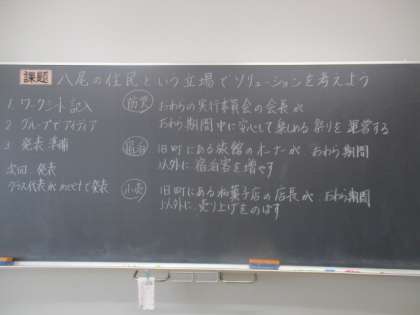 課題 八尾の住民という立場でソリューションを考えよう
1. ワークシート記入
2 グループでアイディア
3 発表準備
次回 発表
クラス代表がめざせて発表
防災 おわらの実行委員会の会長が
おわら期間中に安心して楽しめる祭りを運営する
宿泊 旧町にある旅館のオーナーが おわら期間
以外に宿泊客を増やす
小売 旧町にある和菓子店の店長が おわら期間
以外に売り上げをのばす